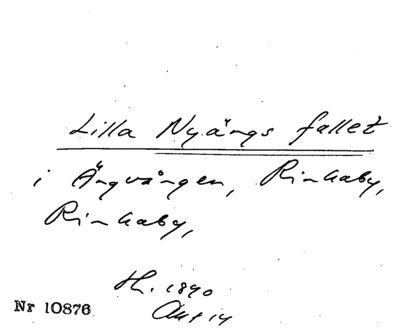 Lilla Nyängs fallet
i Ängvången, Rinkaby,
Rinkaby,
H. 1890
Akt 14
Nr 10876